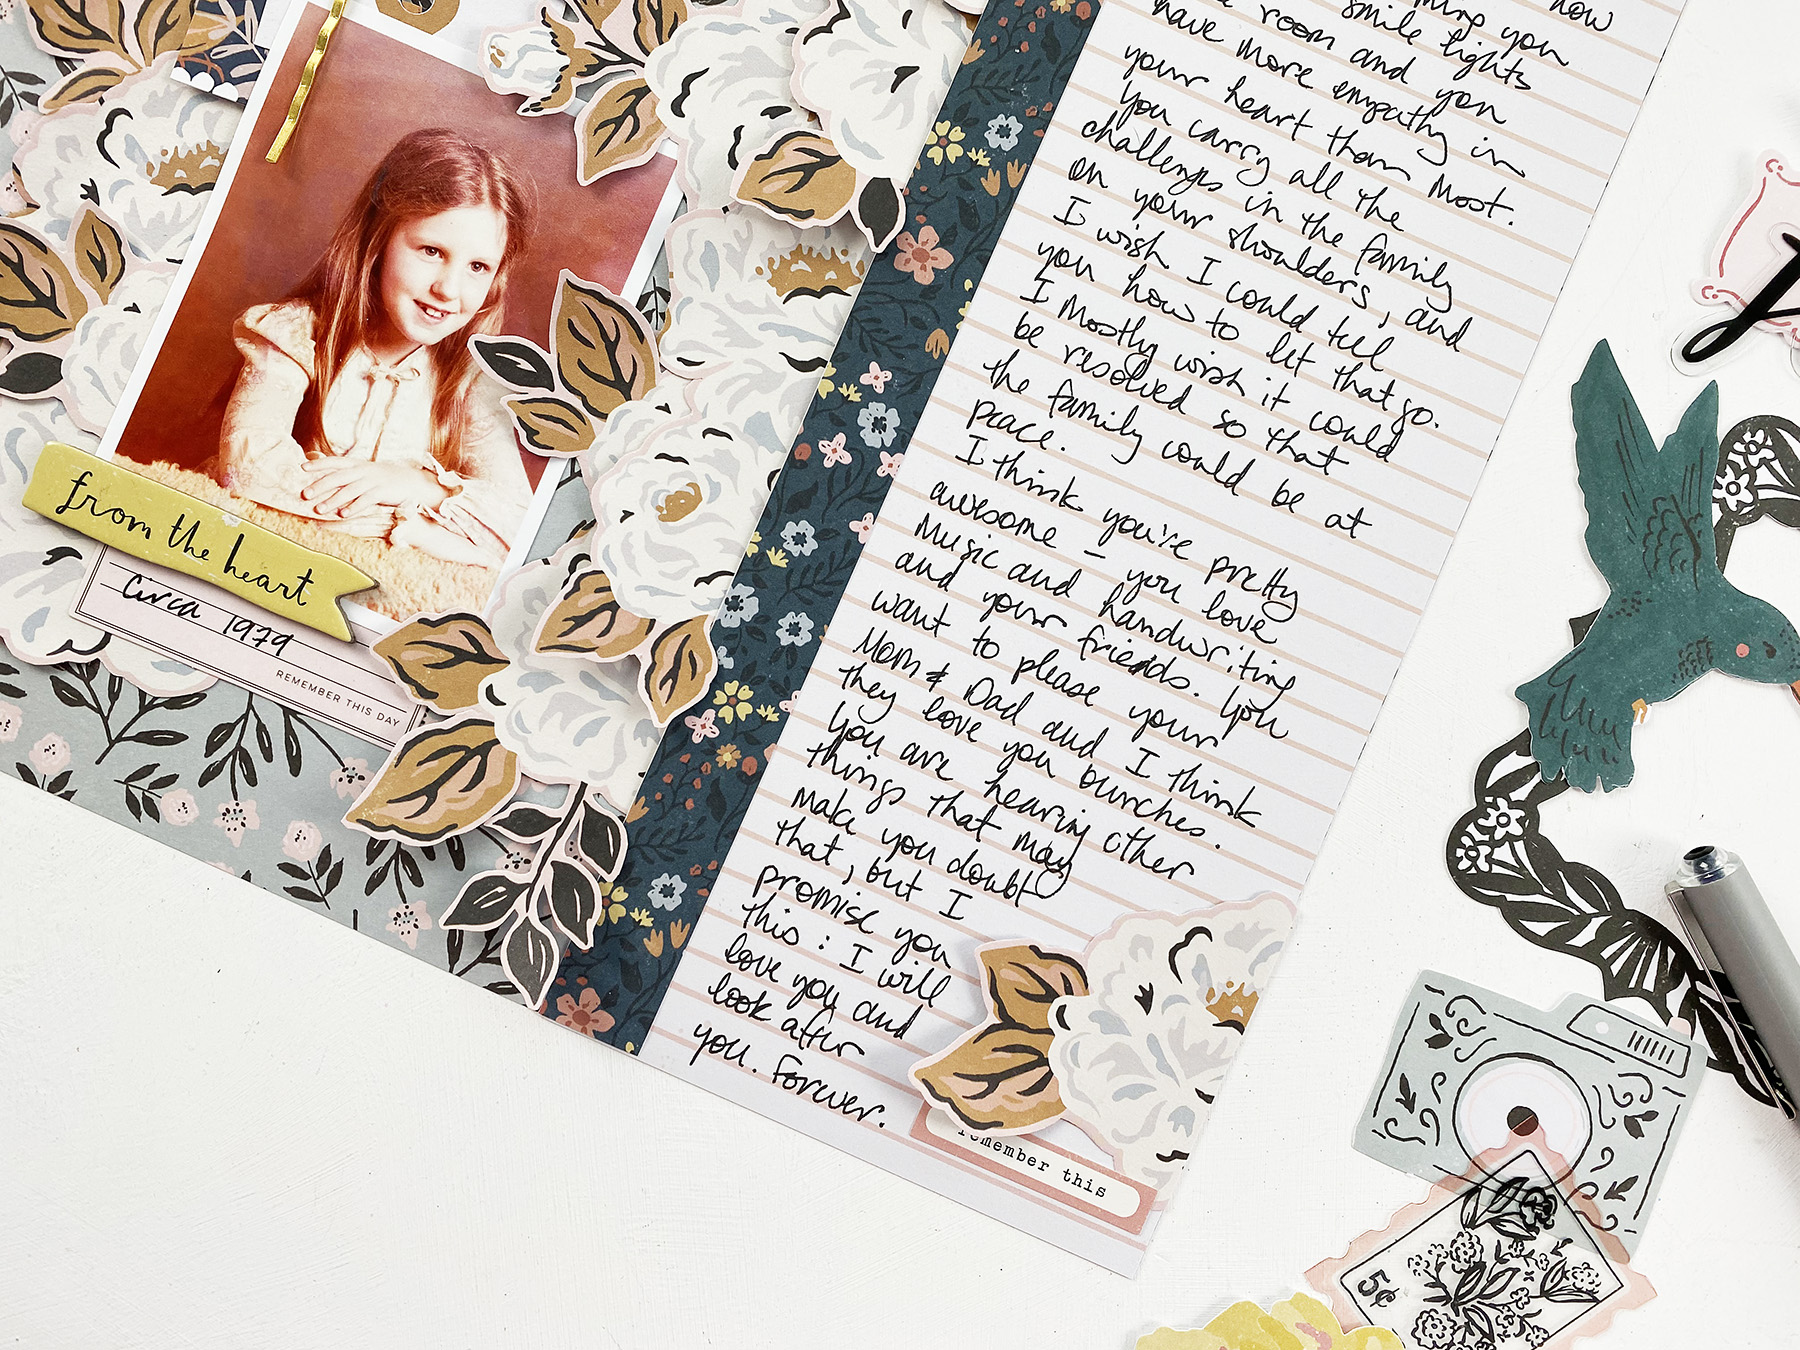 from the heart
Circa 1979
REMEMBER THIS DAY
how
you
smile lights
room and you
have more empathy in
your heart than most.
You carry all the
challenges in the family
on your shoulders, and
I wish I could tell
you how to let that go.
I mostly wish it could
be resolved so that
the family could be at
peace.
I think you're pretty
awesome - you love
music and handwriting
and your friends. You
want to please your
Mom & Dad and I think
they love you bunches.
You are hearing other
things that may
make you doubt
that, but I
promise you
this: I will
love you and
look after
you. Forever.
remember this
5¢